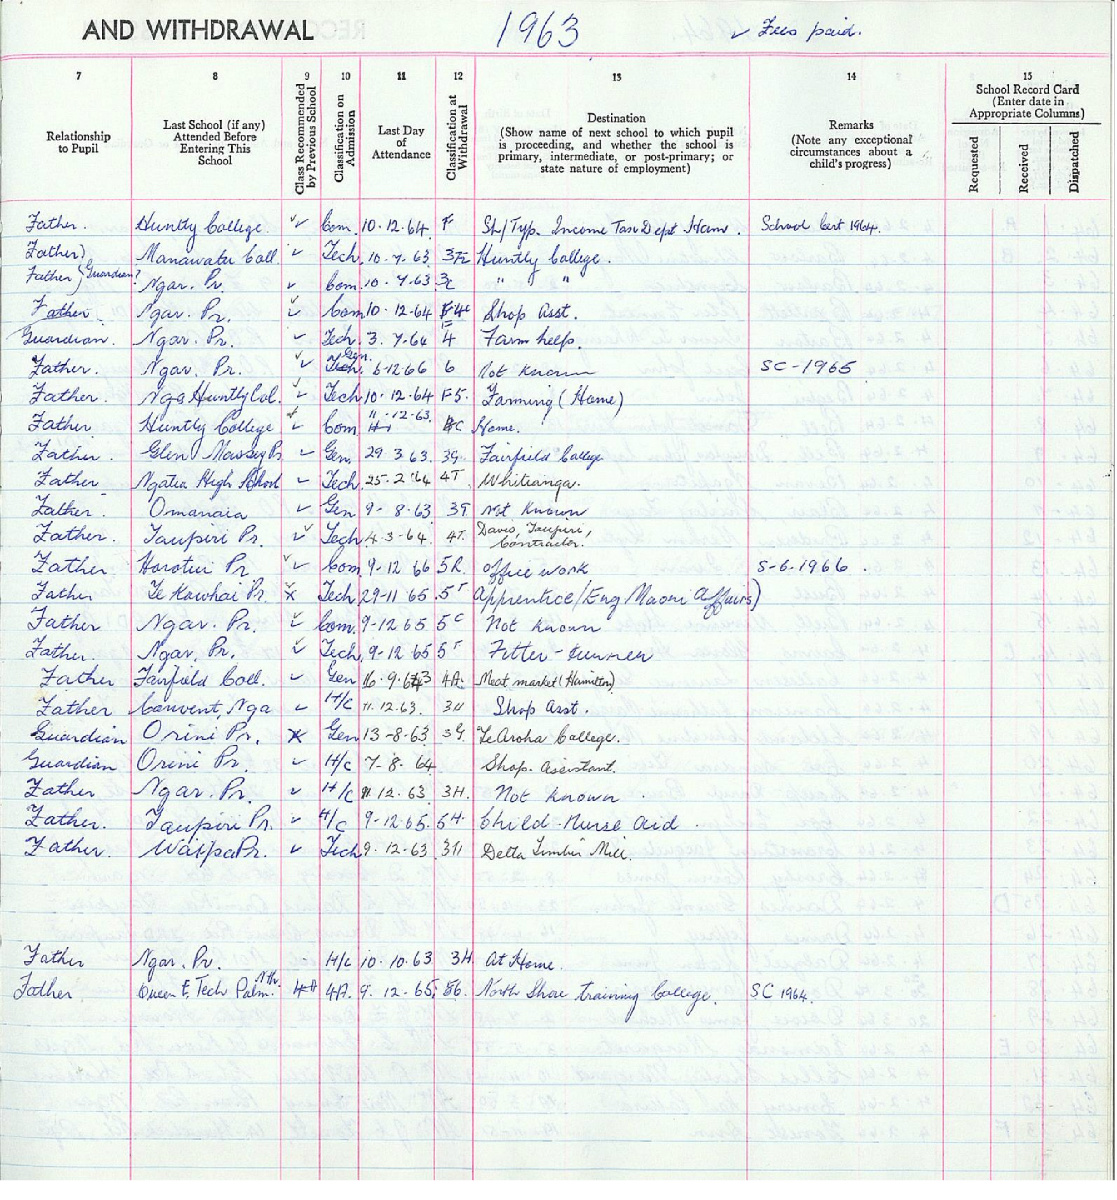 AND WITHDRAWAL 1963 ✓ Fees paid.
7 8 9 10 11 12 13 14 15
Relationship to Pupil
Last School (if any) Attended Before Entering This School
Class Recommended by Previous School
Classification on Admission
Last Day of Attendance
Classification at Withdrawal
Destination (Show name of next school to which pupil is proceeding, and whether the school is primary, intermediate, or post-primary; or state nature of employment)
Remarks (Note any exceptional circumstances about a child's progress)
School Record Card (Enter date in Appropriate Columns)
Requested Received Dispatched
Father. Huntly College ✓ Com. 10.12.64 F Sh/Typ. Income Tax Dept Ham. School Cert 1964.
Father) Manawatu Coll ✓ Tech. 10.7.63 Huntly College.
Father) Guardian? Ngar. Pr. ✓ Com. 10.7.63 3c " "
Father. Ngar. Pr. ✓ Com 10.12.64 Shop Asst.
Guardian. Ngar. Pr. ✓ Tech. 3.7.64 4 Farm help.
Father. Ngar. Pr. ✓ Gen. 6-12 66 6 Not known SC-1965
Father. Huntly Col. ✓ Tech 10.12.64 F5. Farming (Home)
Father Huntly College ✓ Com 11.12.63 Home.
Father. Glen Massey Pr ✓ Gen 29 3.63. 3G. Fairfield College
Father Ngatea High School ✓ Tech. 25.2.64 4T. Whitianga.
Father. Omanaia ✓ Gen 9-8.63 Not known
Father. Taupiri Pr. ✓ Tech 4.3-64. 4T. Davis, Taupiri, Contractor.
Father Horotiu Pr. ✓ Com. 9-12 66 5R. office work S-6.1966.
Father Te Kowhai Pr. x Tech 29-11 65. 5T Apprentice/Eng Maori Affairs)
Father Ngar. Pr. ✓ Com. 9-12 65 5c Not known
Father. Ngar. Pr. ✓ Tech. 9-12 65 5T Fitter-turner
Father Fairfield Coll. ✓ Gen 16.9.63 4A. Meat market (Hamilton)
Father Convent, Nga ✓ H/C 11.12.63. 3H Shop Asst.
Guardian Orini Pr. x Gen 13-8-63 3G. Te Aroha College.
Guardian Orini Pr. ✓ H/C 7-8.64 Shop. Assistant.
Father Ngar. Pr. ✓ H/C 11.12.63 3H. Not known
Father. Taupiri Pr. ✓ H/C 9-12.65. 5H. Child-Nurse Aid.
Father. Waipa Pr. ✓ Tech 9.12-63 Delta Timber Mill.
Father Ngar. Pr. H/C 10.10.63 3H At Home.
Father Queen E. Tech Palm. Nth. 4A 4A. 9.12.65 North Shore training College. SC 1964.